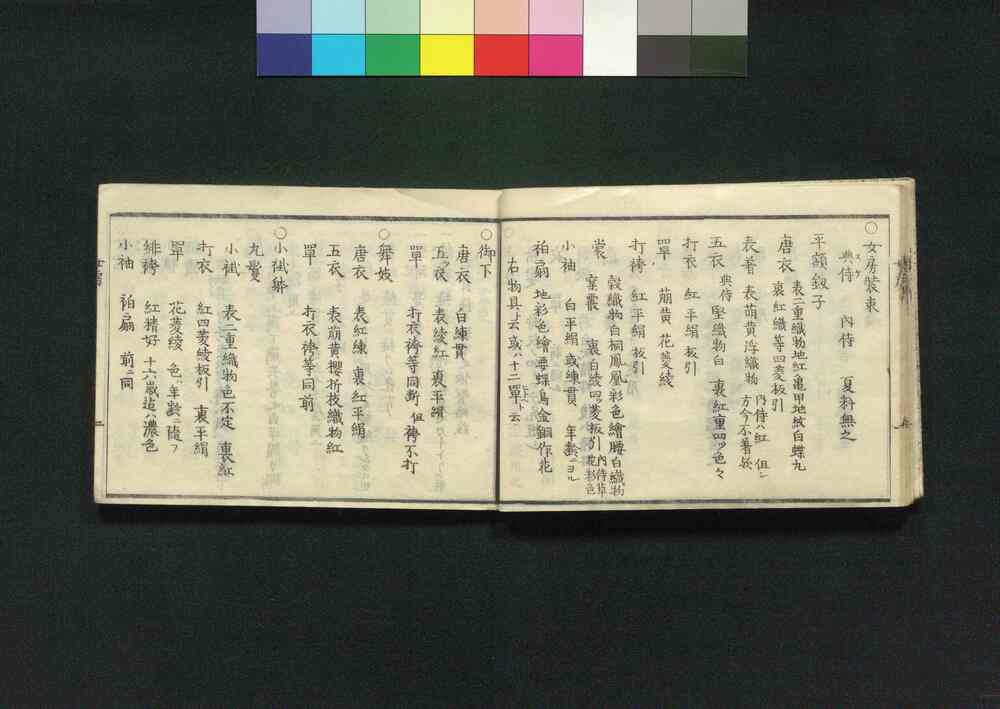 ○女房裝束
典侍 內侍 夏料無之
スケ
平額釵子
唐衣 表二重織物地紅亀甲地紋白蝶丸
裏紅織等四菱板引
表着 表萌黄浮織物 內侍ハ紅 但シ
方今不著
五衣 典侍 堅織物白 裏紅重四ツ色々
打衣 紅平絹 板引
單 萌黄 花菱綾
打袴 紅平絹 板引
裳 縠織物白桐鳳凰彩色繪腰白織物
裏白綾四ツ菱板引
小袖 白平絹 或練貫 年齡ニヨル
袙扇 地彩色繪要蝶鳥金銅作花
右物具ト云或ハ十二單ト云
○御下
唐衣 白練貫
五ツ衣 表綾紅 裏平絹
單 打衣袴等同斷 但袴不打
○舞妓
唐衣 表紅練 裏紅平絹
五衣 表萌黄櫻折枝織物紅
單 打衣袴等同前
○小袿
丸鬘
小袿 表二重織物色不定 裏紅
打衣 紅四菱綾板引 裏平絹
單 花菱綾 色ハ年齡ニ隨フ
緋袴 紅精好 十六歲迠ハ濃色
小袖 袙扇 前ニ同
二